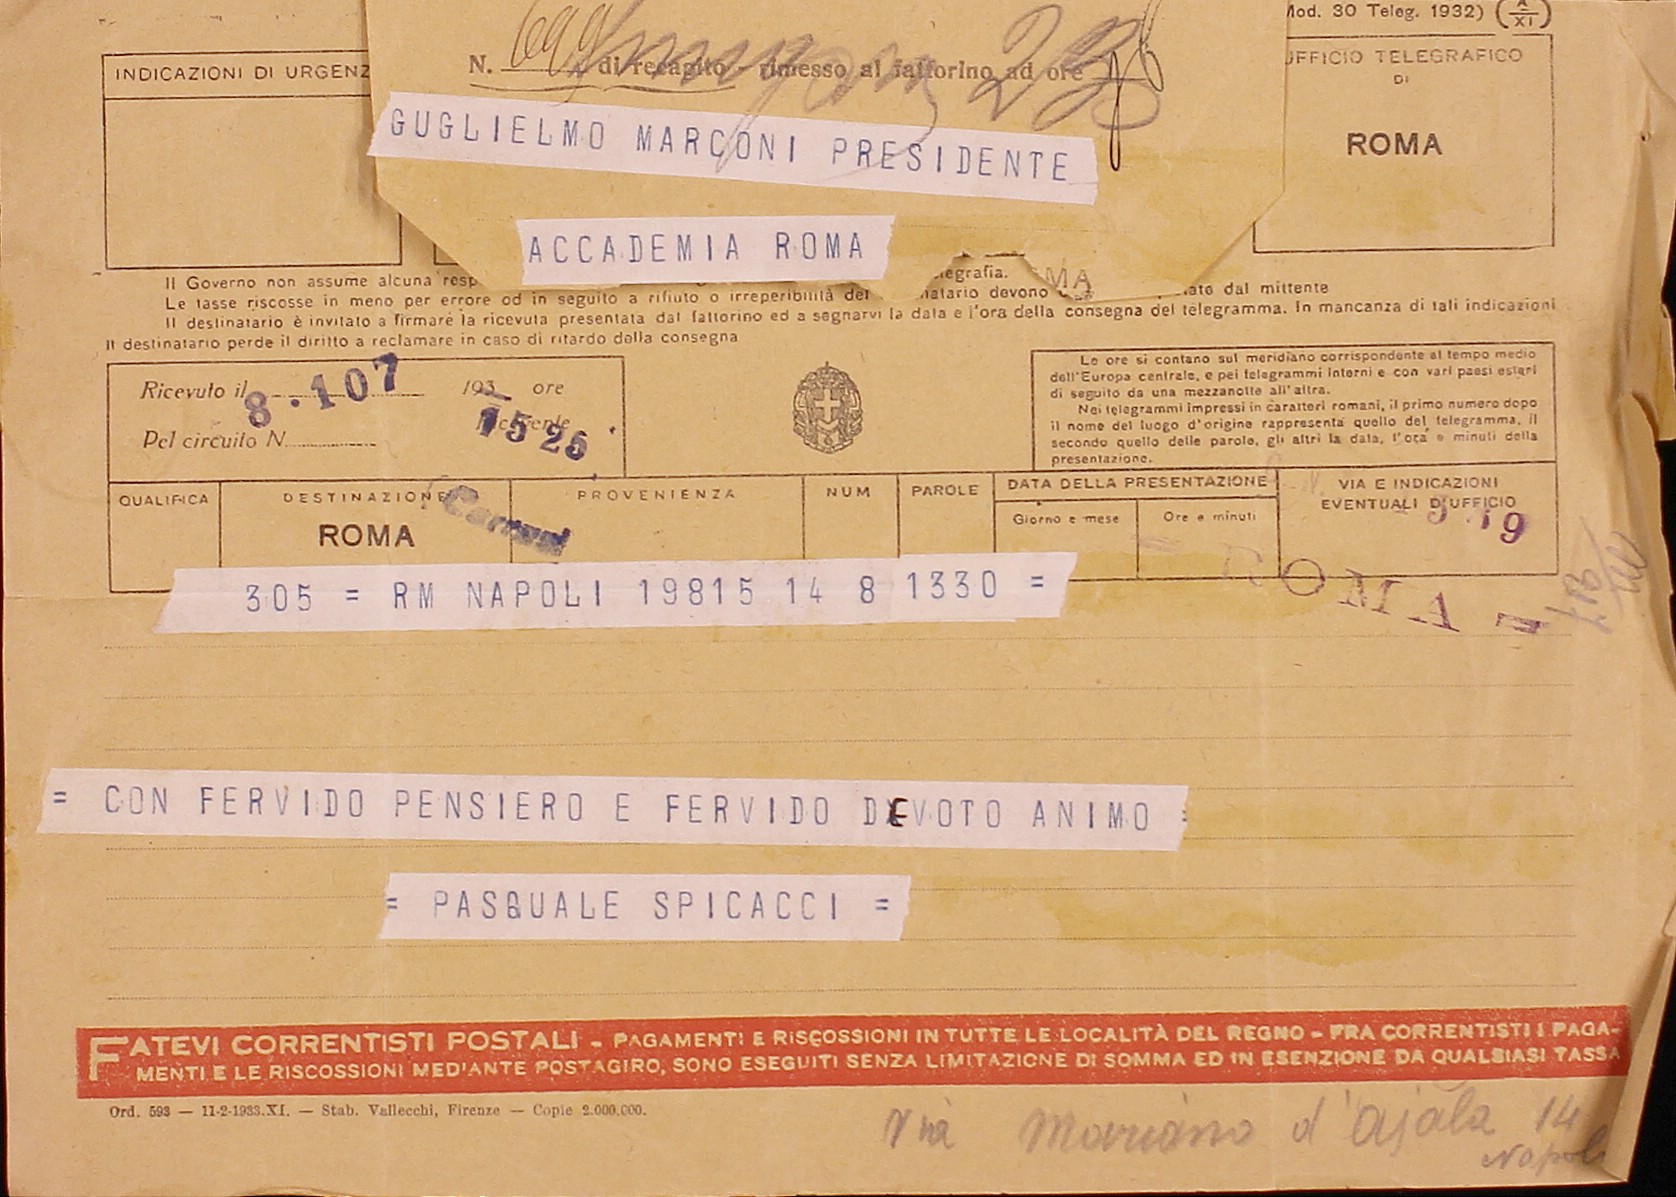 Mod. 30 Teleg. 1932) (A/XI)
INDICAZIONI DI URGENZ
N. di recapito - rimesso al fattorino ad ore
UFFICIO TELEGRAFICO
DI
ROMA
GUGLIELMO MARCONI PRESIDENTE
ACCADEMIA ROMA
Il Governo non assume alcuna resp egrafia.
Le tasse riscosse in meno per errore od in seguito a rifiuto o irreperibilità del natario devono dal mittente
Il destinatario è invitato a firmare la ricevuta presentata dal fattorino ed a segnarvi la data e l'ora della consegna del telegramma. In mancanza di tali indicazioni
Il destinatario perde il diritto a reclamare in caso di ritardo della consegna
Ricevuto il 8.107 193 ore 1525
Pel circuito N.
Le ore si contano sul meridiano corrispondente al tempo medio
dell'Europa centrale, e pei telegrammi interni e con vari paesi esteri
di seguito da una mezzanotte all'altra.
Nei telegrammi impressi in caratteri romani, il primo numero dopo
il nome del luogo d'origine rappresenta quello del telegramma, il
secondo quello delle parole, gli altri la data, l'ora e minuti della
presentazione.
QUALIFICA DESTINAZIONE PROVENIENZA NUM PAROLE DATA DELLA PRESENTAZIONE VIA E INDICAZIONI
EVENTUALI D'UFFICIO
Giorno e mese Ore e minuti
ROMA
ROMA
305 = RM NAPOLI 19815 14 8 1330 =
= CON FERVIDO PENSIERO E FERVIDO DEVOTO ANIMO =
= PASQUALE SPICACCI =
FATEVI CORRENTISTI POSTALI - PAGAMENTI E RISCOSSIONI IN TUTTE LE LOCALITÀ DEL REGNO - FRA CORRENTISTI I PAGA-
MENTI E LE RISCOSSIONI MEDIANTE POSTAGIRO, SONO ESEGUITI SENZA LIMITAZIONE DI SOMMA ED IN ESENZIONE DA QUALSIASI TASSA
Ord. 593 — 11-2-1933.XI. — Stab. Vallecchi, Firenze — Copie 2.000.000.
Via Mariano d'Ajala 14
Napoli